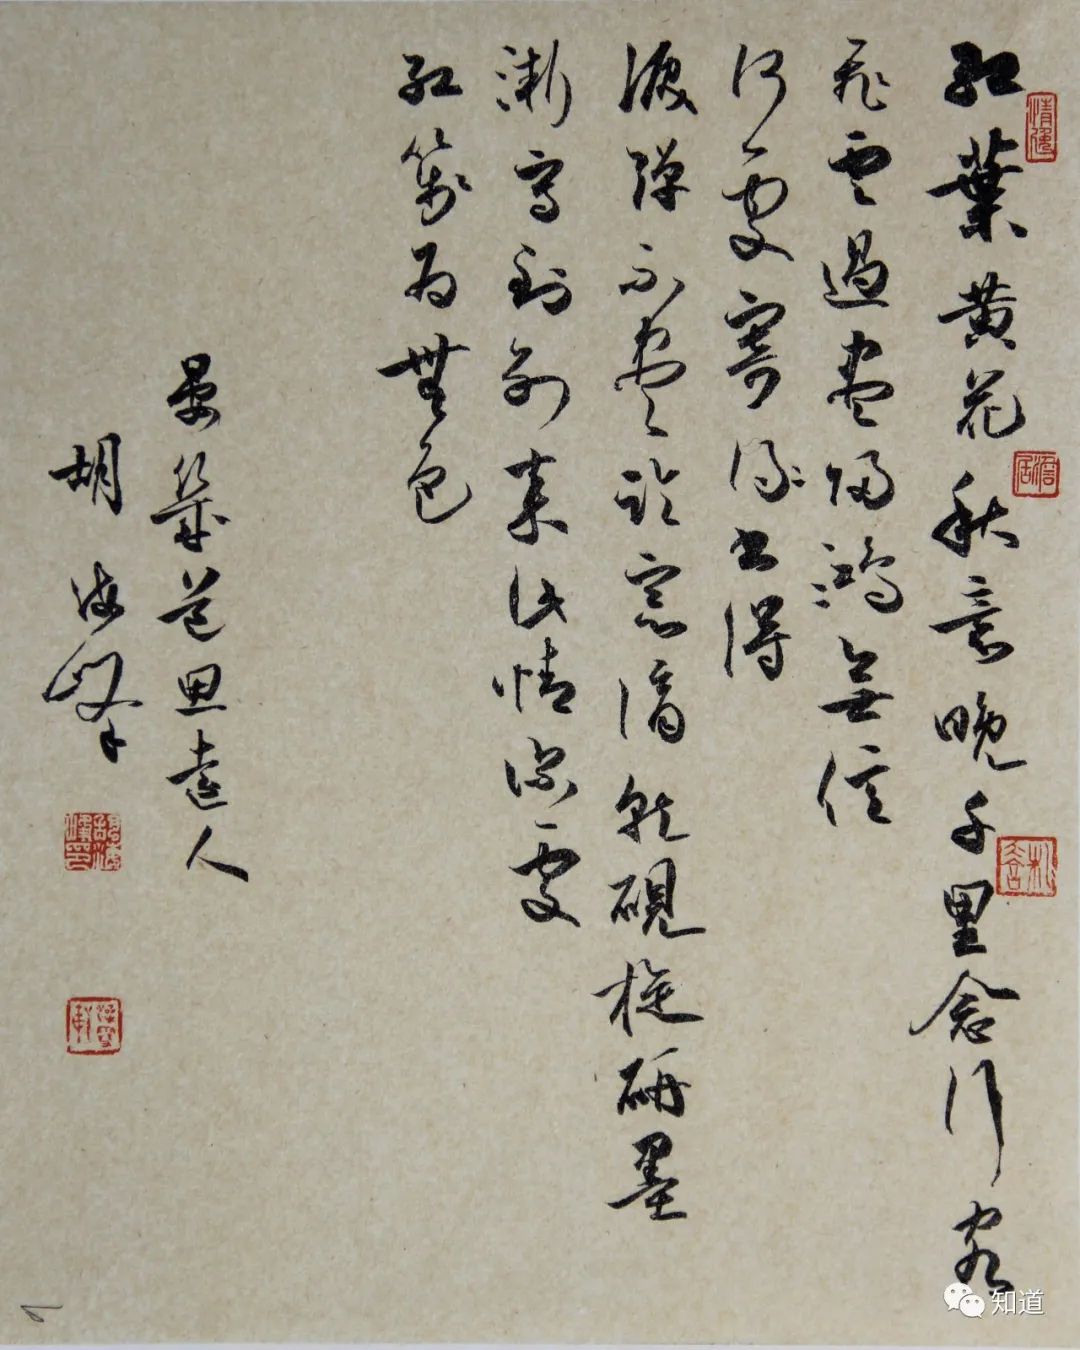 紅葉黄花秋意晚千里念行客
飛雲過盡歸鴻無信
何處寄書得
淚彈不盡臨窗滴就硯旋研墨
漸寫到別來此情深處
紅箋為無色
晏幾道思遠人
胡海峰
知道